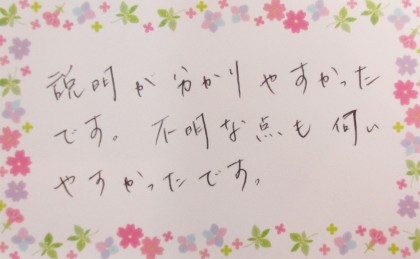 説明が分かりやすかった
です。不明な点も伺い
やすかったです。